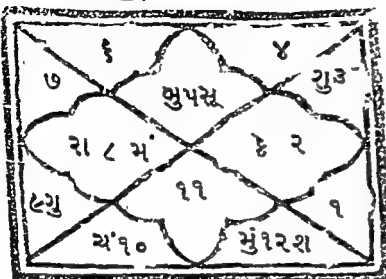 ૬ ૪
૭ બુ૫સૂ ગુ૩
રા ૮ મં કે ૨
૯શુ ૧૧ ૧
ચં૧૦ મું૧૨શ